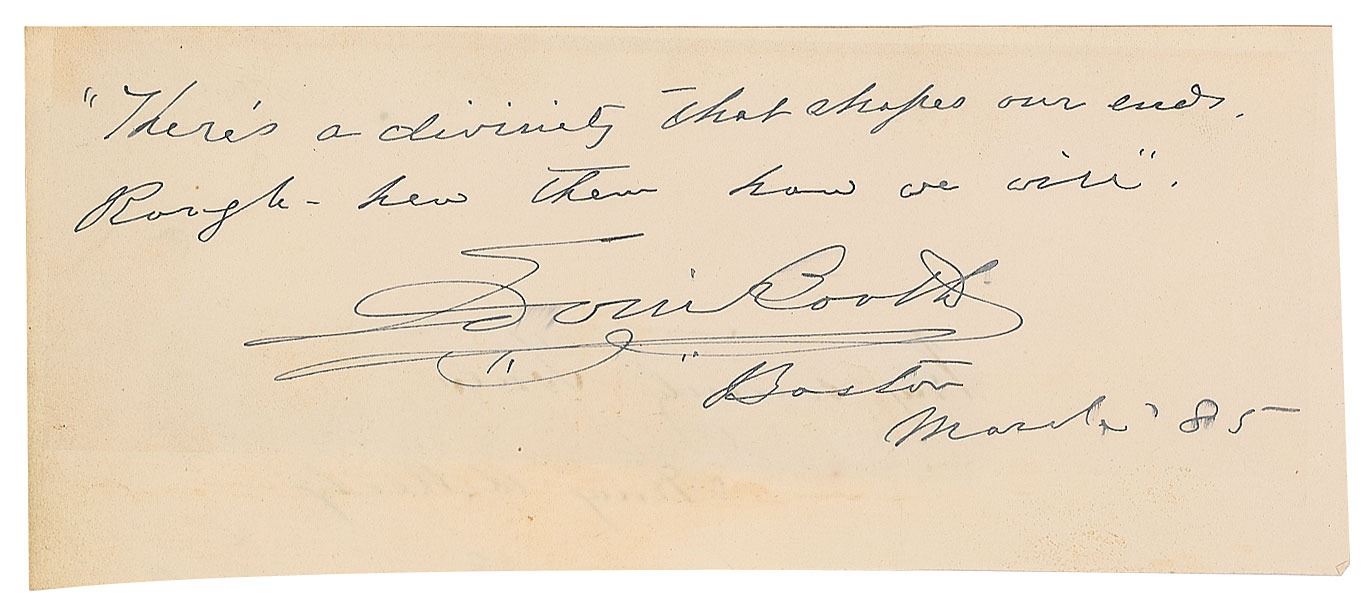 "There's a divinity that shapes our ends,
Rough-hew them how we will".
Edwin Booth
Boston
March '85